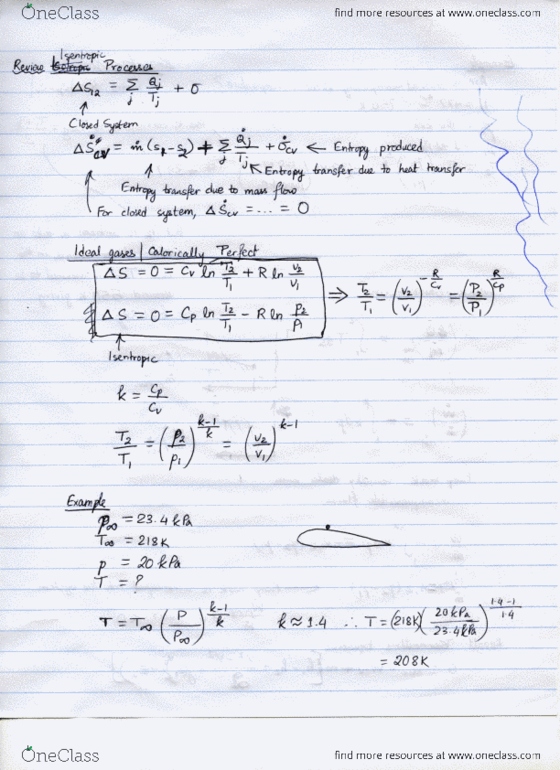 OneClass
find more resources at www.oneclass.com
Isentropic
Review Isotropic Processes
ΔS₁₂ = Σⱼ Qⱼ/Tⱼ + σ
Closed System
ΔṠcv = ṁ(s₁-s₂) + Σⱼ Q̇ⱼ/Tⱼ + σ̇cv ← Entropy produced
Entropy transfer due to heat transfer
Entropy transfer due to mass flow
For closed system, ΔṠcv = ... = 0
Ideal gases | Calorically Perfect
ΔS = 0 = Cv ln T₂/T₁ + R ln v₂/v₁
⇒ T₂/T₁ = (v₂/v₁)^(-R/Cv) = (P₂/P₁)^(R/Cp)
ΔS = 0 = Cp ln T₂/T₁ - R ln p₂/p₁
Isentropic
k = Cp/Cv
T₂/T₁ = (p₂/p₁)^((k-1)/k) = (v₂/v₁)^(k-1)
Example
p∞ = 23.4 kPa
T∞ = 218K
p = 20 kPa
T = ?
T = T∞ (P/P∞)^((k-1)/k) k ≈ 1.4 ∴ T = (218K)(20kPa/23.4kPa)^((1.4-1)/1.4)
= 208K
OneClass
find more resources at www.oneclass.com